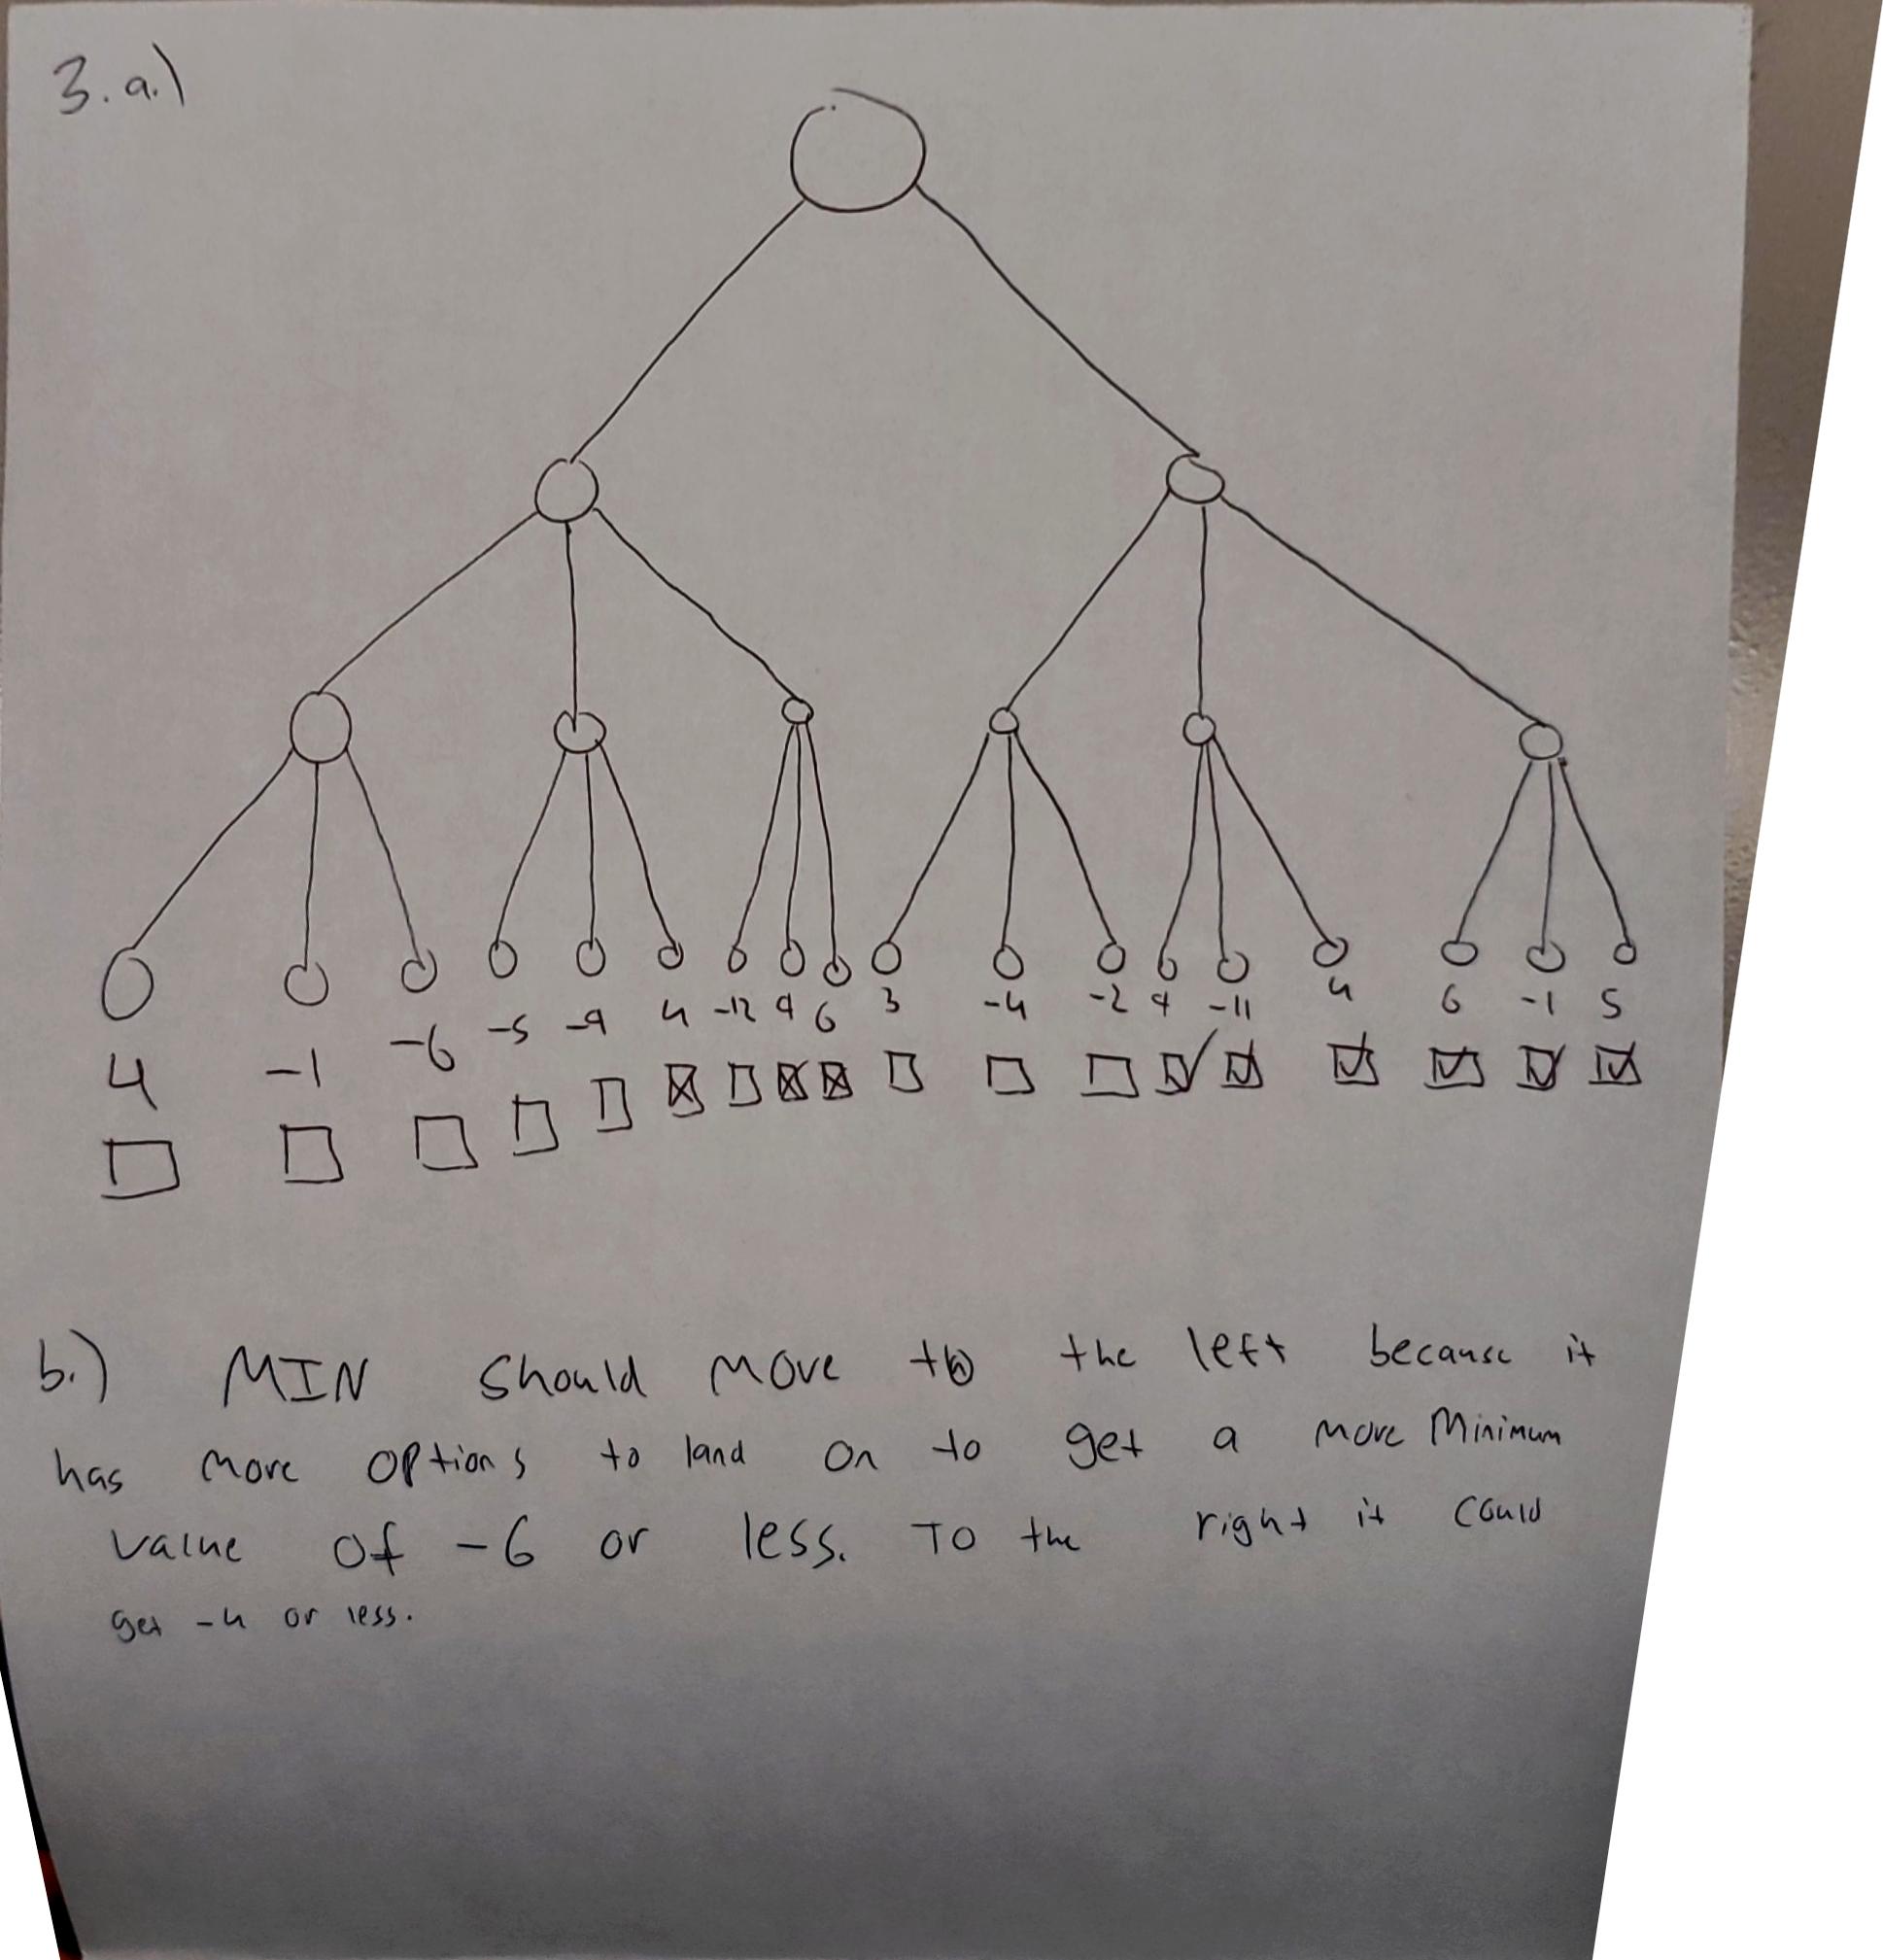 3. a.)
4 -1 -6 -5 -9 4 -12 9 6 3 -4 -2 9 -11 4 6 -1 5
b.) MIN should move to the left because it
has more options to land on to get a more Minimum
value of -6 or less. To the right it could
get -4 or less.